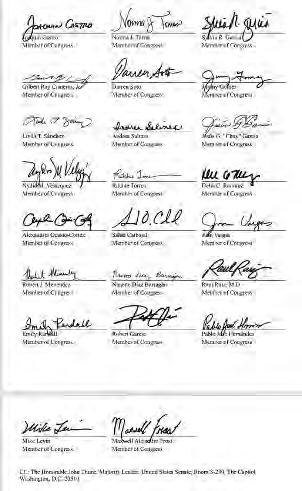 Joaquin Castro Norma J. Torres Sylvia R. Garcia
Joaquin Castro Norma J. Torres Sylvia R. Garcia
Member of Congress Member of Congress Member of Congress
Darren Soto Jimmy Gomez
Gilbert Ray Cisneros, Jr. Darren Soto Jimmy Gomez
Member of Congress Member of Congress Member of Congress
Andrea Salinas
Linda T. Sánchez Andrea Salinas Jesús G. "Chuy" García
Member of Congress Member of Congress Member of Congress
Nydia M. Velázquez Ritchie Torres Delia C. Ramirez
Member of Congress Member of Congress Member of Congress
Juan Vargas
Alexandria Ocasio-Cortez Salud Carbajal Juan Vargas
Member of Congress Member of Congress Member of Congress
Nanette Diaz Barragán Raul Ruiz
Robert J. Menendez Nanette Diaz Barragán Raul Ruiz, M.D.
Member of Congress Member of Congress Member of Congress
Emily Randall
Emily Randall Robert Garcia Pablo José Hernández
Member of Congress Member of Congress Member of Congress
Mike Levin Maxwell Frost
Mike Levin Maxwell Alejandro Frost
Member of Congress Member of Congress
The Honorable John Thune, Majority Leader, United States Senate, Room S-230, The Capitol
Washington, D.C. 20510